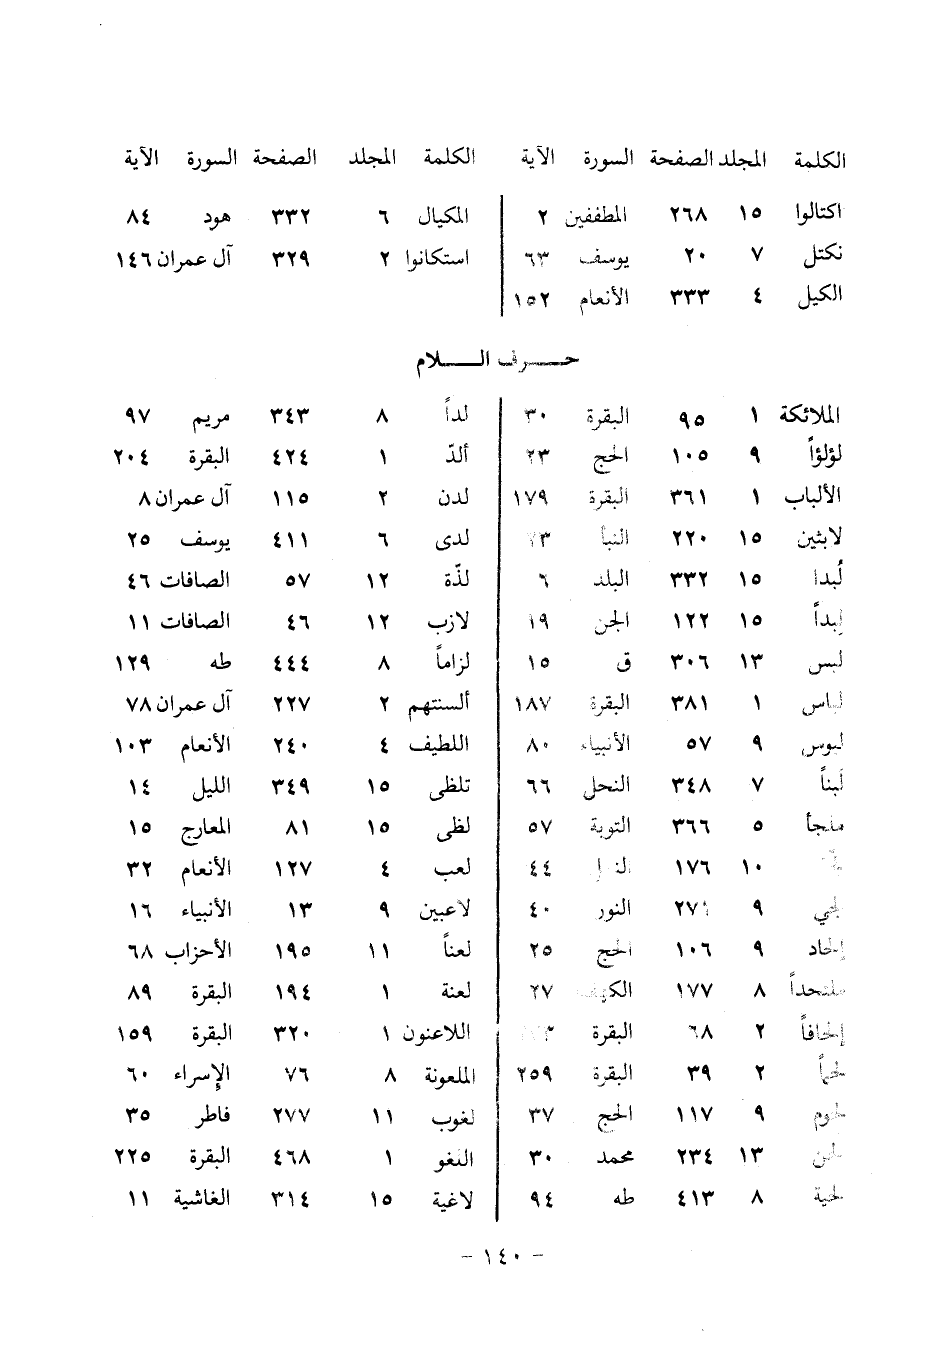 الكلمة المجلد الصفحة السورة الآية الكلمة المجلد الصفحة السورة الآية
اكتالوا ١٥ ٢٦٨ المطففين ٢ المكيال ٦ ٣٣٢ هود ٨٤
نكتل ٧ ٢٠ يوسف ٦٣ استكانوا ٢ ٣٢٩ آل عمران ١٤٦
الكيل ٤ ٣٣٣ الأنعام ١٥٢
حرف اللام
الملائكة ١ ٩٥ البقرة ٣٠ لداً ٨ ٣٤٣ مريم ٩٧
لؤلؤاً ٩ ١٠٥ الحج ٢٣ ألدّ ١ ٤٢٤ البقرة ٢٠٤
الألباب ١ ٣٦١ البقرة ١٧٩ لدن ٢ ١١٥ آل عمران ٨
لابثين ١٥ ٢٢٠ النبأ لدى ٦ ٤١١ يوسف ٢٥
لُبدا ١٥ ٣٣٢ البلد ٦ لذّة ١٢ ٥٧ الصافات ٤٦
لِبداً ١٥ ١٢٢ الجن ١٩ لازب ١٢ ٤٦ الصافات ١١
لبس ١٣ ٣٠٦ ق ١٥ لزاماً ٨ ٤٤٤ طه ١٢٩
لباس ١ ٣٨١ البقرة ١٨٧ ألسنتهم ٢ ٢٢٧ آل عمران ٧٨
لبوس ٩ ٥٧ الأنبياء ٨٠ اللطيف ٤ ٢٤٠ الأنعام ١٠٣
لبناً ٧ ٣٤٨ النحل ٦٦ تلظى ١٥ ٣٤٩ الليل ١٤
ملجأ ٥ ٣٦٦ التوبة ٥٧ لظى ١٥ ٨١ المعارج ١٥
١٠ ١٧٦ ٤٤ لعب ٤ ١٢٧ الأنعام ٣٢
لجي ٩ ٢٧١ النور ٤٠ لاعبين ٩ ١٣ الأنبياء ١٦
إلحاد ٩ ١٠٦ الحج ٢٥ لعناً ١١ ١٩٥ الأحزاب ٦٨
ملتحداً ٨ ١٧٧ الكهف ٢٧ لعنة ١ ١٩٤ البقرة ٨٩
إلحافاً ٢ ٦٨ البقرة اللاعنون ١ ٣٢٠ البقرة ١٥٩
لحماً ٢ ٣٩ البقرة ٢٥٩ الملعونة ٨ ٧٦ الإسراء ٦٠
لحوم ٩ ١١٧ الحج ٣٧ لغوب ١١ ٢٧٧ فاطر ٣٥
لحن ١٣ ٢٣٤ محمد ٣٠ اللغو ١ ٤٦٨ البقرة ٢٢٥
لحية ٨ ٤١٣ طه ٩٤ لاغية ١٥ ٣١٤ الغاشية ١١
- ١٤٠ -